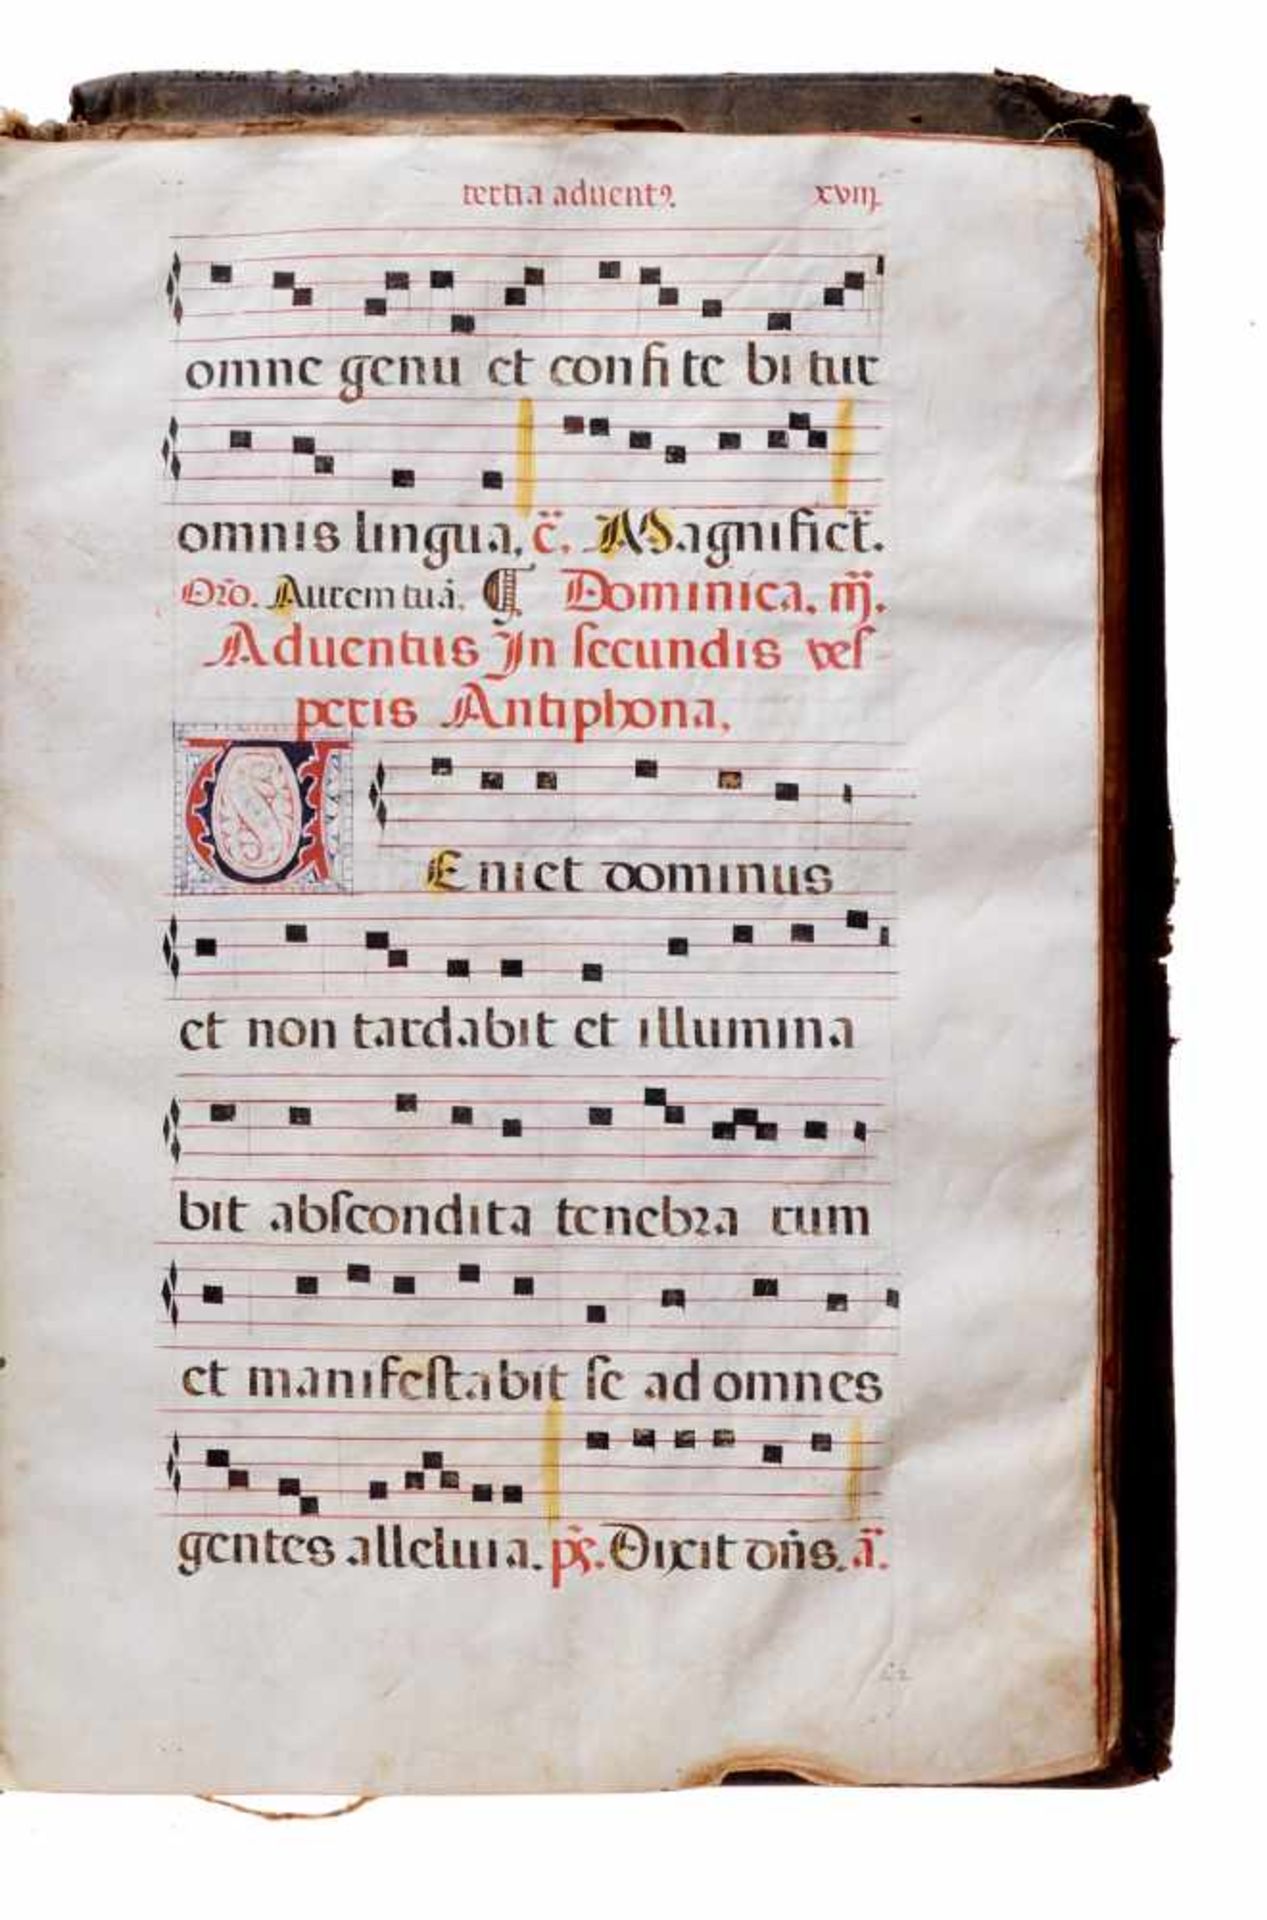 tertia aduentꝯ. xviij.
omne genu et confi te bi tur
omnis lingua. c̃. Magnifict̃.
Oro᷉. Aurem tuā. ¶ Dominica. iij.
Aduentus In ſecundis veſ
peris Antiphona.
VEniet dominus
et non tardabit et illumina
bit abſcondita tenebꝛa rum
et manifeſtabit ſe ad omnes
gentes alleluia. ps̃. Dixit dñs. ã.